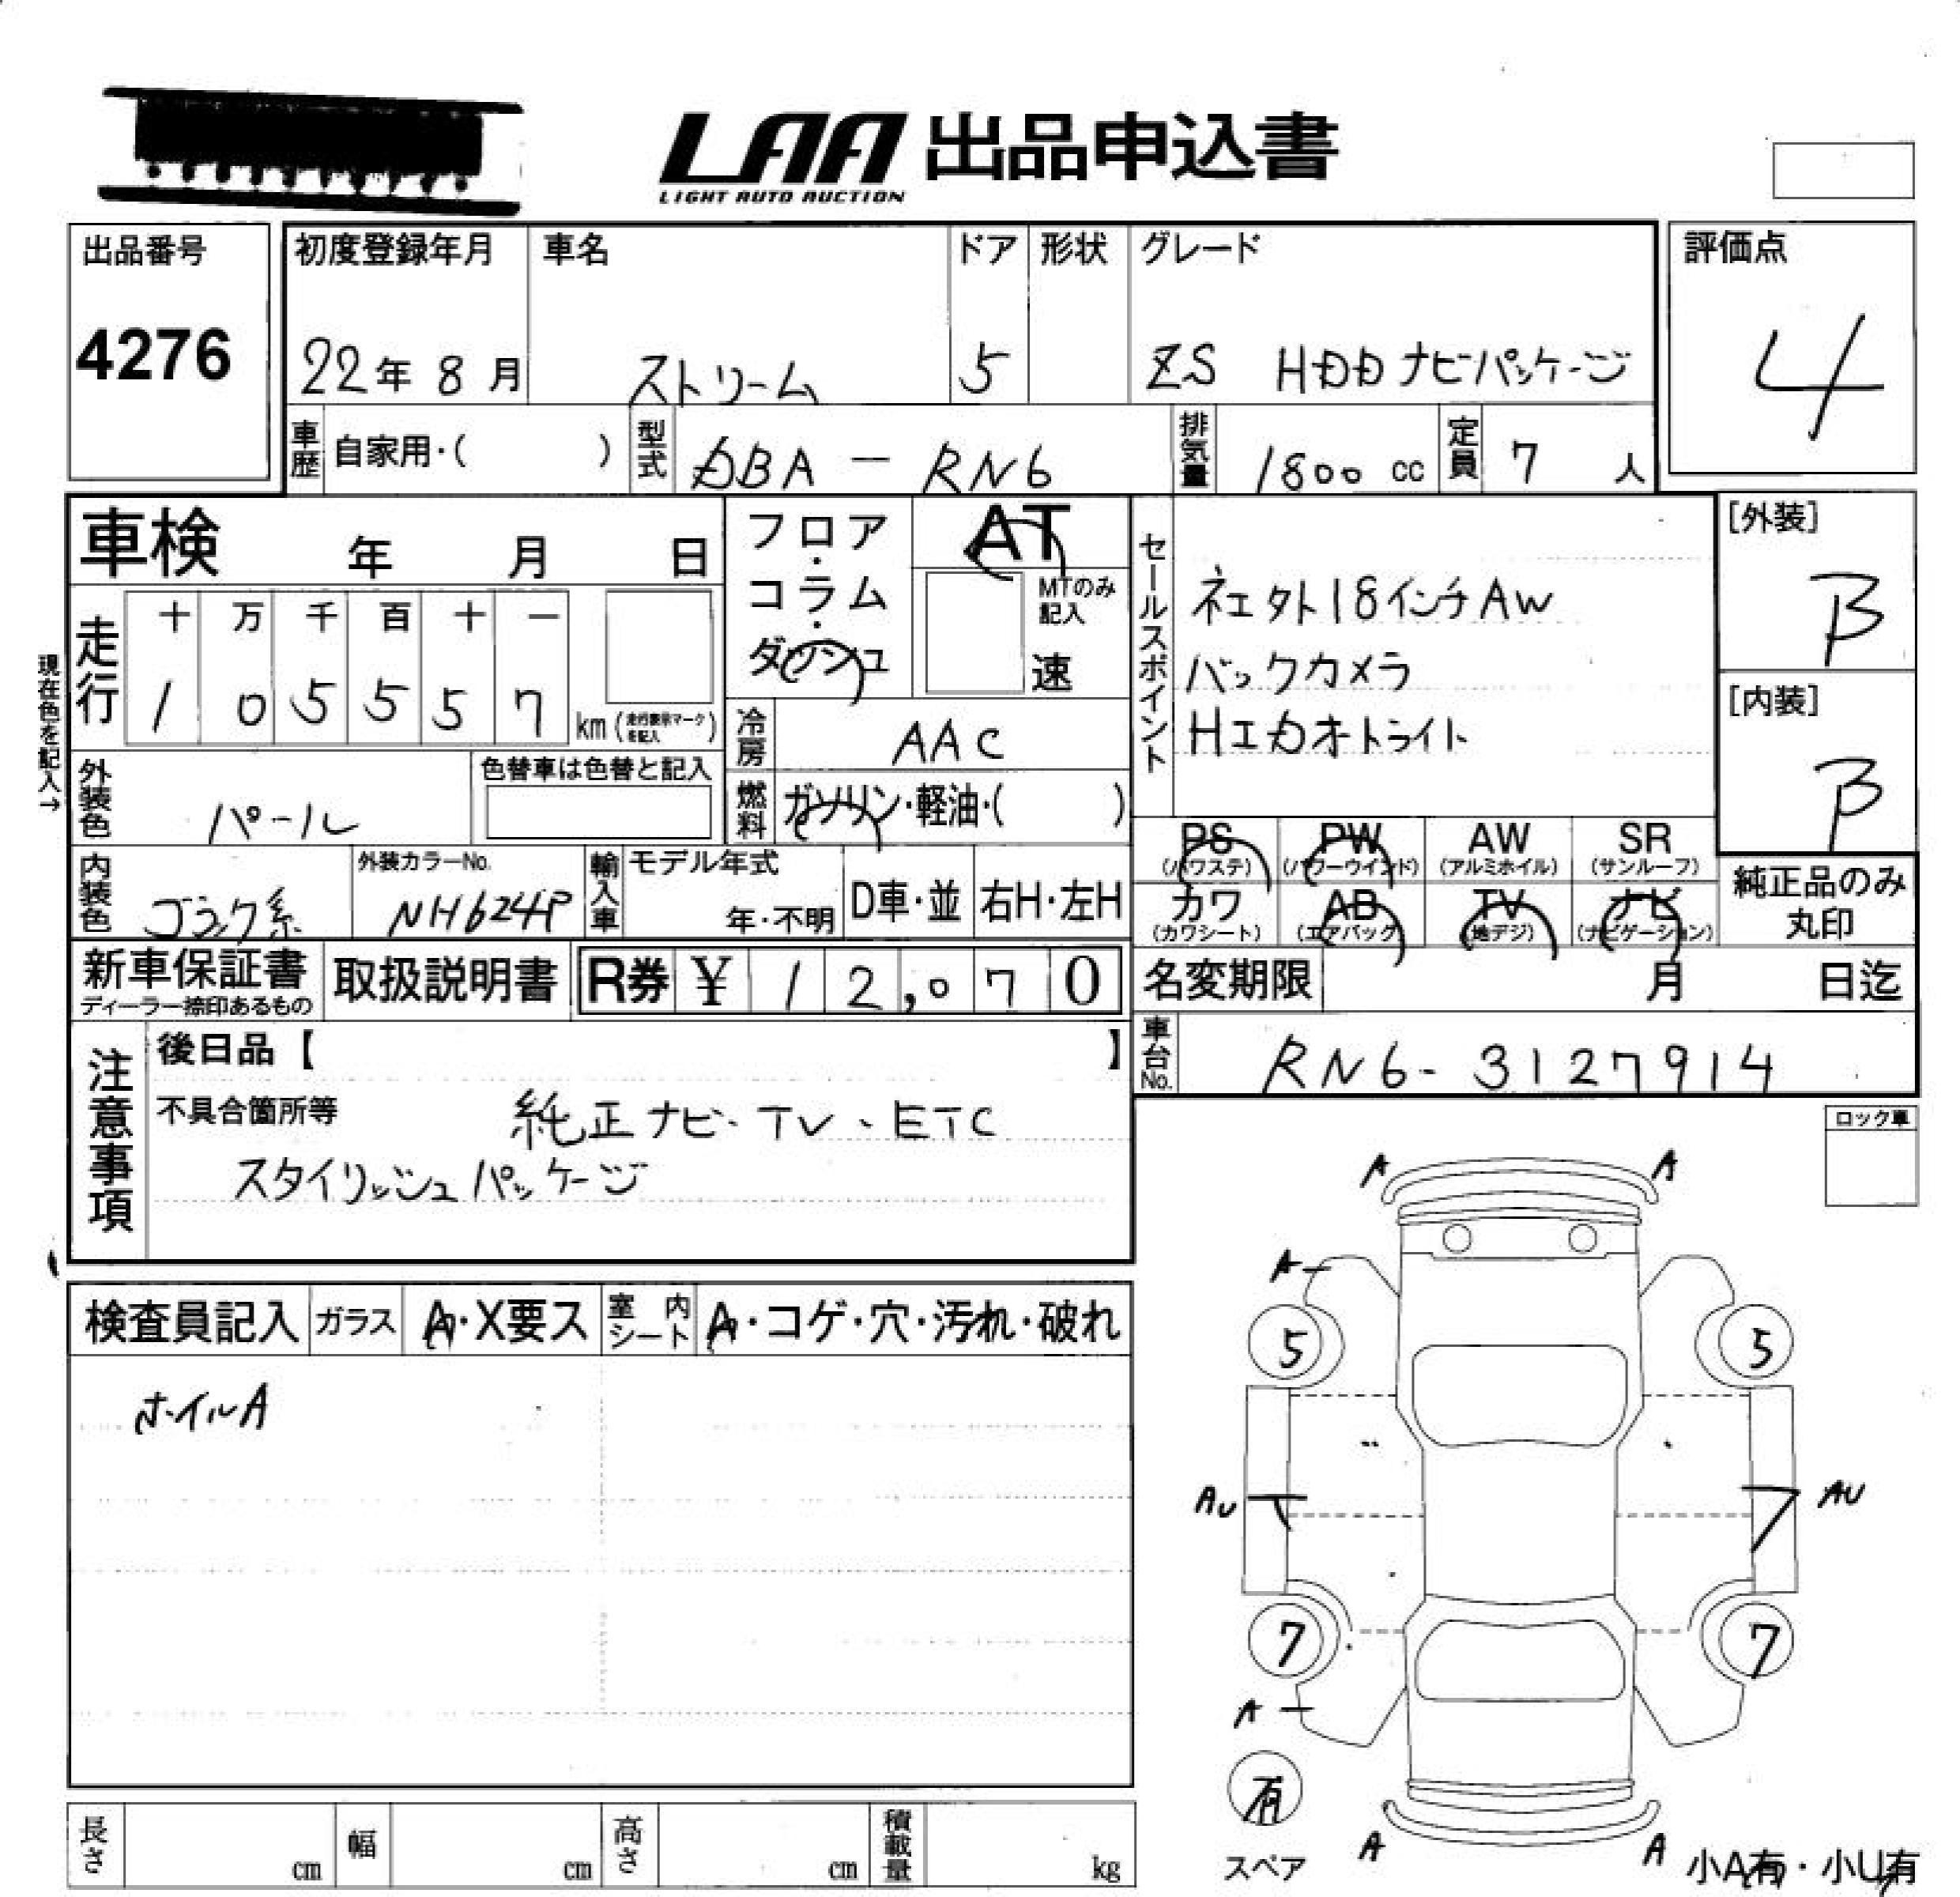 LAA 出品申込書
LIGHT AUTO AUCTION
出品番号
4276
初度登録年月
22年 8月
車名
ストリーム
ドア
5
形状
グレード
ZS HDDナビパッケージ
評価点
4
車歴
自家用・( )
型式
DBA - RN6
排気量
1800 cc
定員
7 人
車検 年 月 日
フロア・コラム・ダッシュ
AT
MTのみ記入
速
セールスポイント
ネエタト18インチAW
バックカメラ
HIDオートライト
[外装]
B
[内装]
B
現在色を記入→
走行
十 万 千 百 十 一
1 0 5 5 5 7
km (走行表示マークを記入)
冷房
AAC
外装色
パール
色替車は色替と記入
燃料
ガソリン・軽油・( )
PS (パワステ)
PW (パワーウインド)
AW (アルミホイル)
SR (サンルーフ)
内装色
ブラック系
外装カラーNo.
NH624P
輸入車
モデル年式
年・不明
D車・並
右H・左H
カワ (カワシート)
AB (エアバック)
TV (地デジ)
ナビ (ナビゲーション)
純正品のみ丸印
新車保証書
ディーラー捺印あるもの
取扱説明書
R券 ¥ 12,070
名変期限 月 日迄
車台No.
RN6-3127914
注意事項
後日品【 】
不具合箇所等
純正ナビ、TV、ETC
スタイリッシュパッケージ
ロック車
検査員記入
ガラス
A・X要ス
室内シート
A・コゲ・穴・汚れ・破れ
ホイルA
A A
A
5 5
AU AU
7 7
A
有
スペア
A A
小A有・小U有
長さ cm
幅 cm
高さ cm
積載量 kg